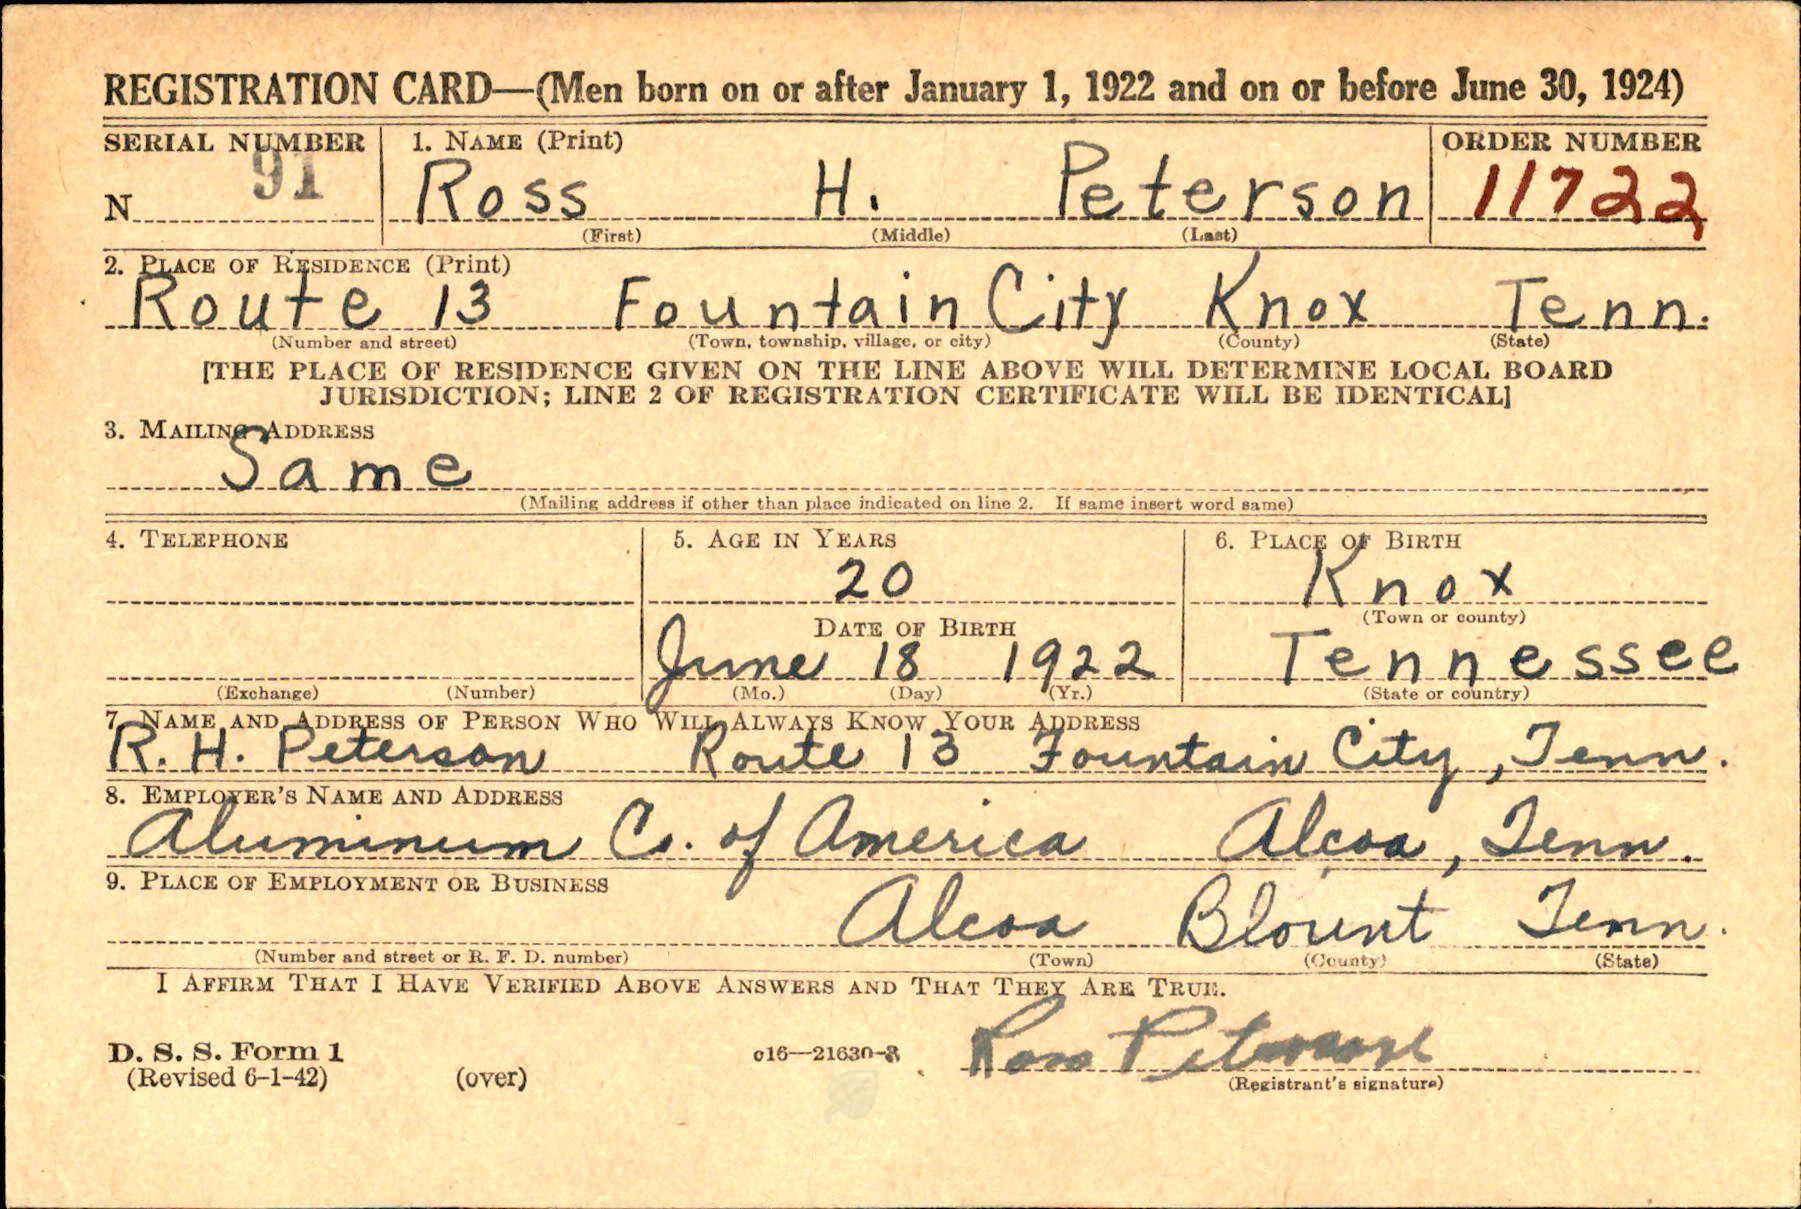 REGISTRATION CARD—(Men born on or after January 1, 1922 and on or before June 30, 1924)
SERIAL NUMBER 1. NAME (Print) ORDER NUMBER
N 91 Ross H. Peterson 11722
(First) (Middle) (Last)
2. PLACE OF RESIDENCE (Print)
Route 13 Fountain City Knox Tenn.
(Number and street) (Town, township, village, or city) (County) (State)
[THE PLACE OF RESIDENCE GIVEN ON THE LINE ABOVE WILL DETERMINE LOCAL BOARD
JURISDICTION; LINE 2 OF REGISTRATION CERTIFICATE WILL BE IDENTICAL]
3. MAILING ADDRESS
Same
(Mailing address if other than place indicated on line 2. If same insert word same)
4. TELEPHONE 5. AGE IN YEARS 6. PLACE OF BIRTH
20 Knox
DATE OF BIRTH (Town or county)
June 18 1922 Tennessee
(Exchange) (Number) (Mo.) (Day) (Yr.) (State or country)
7. NAME AND ADDRESS OF PERSON WHO WILL ALWAYS KNOW YOUR ADDRESS
R. H. Peterson Route 13 Fountain City, Tenn.
8. EMPLOYER'S NAME AND ADDRESS
Aluminum Co. of America Alcoa, Tenn.
9. PLACE OF EMPLOYMENT OR BUSINESS
Alcoa Blount Tenn.
(Number and street or R. F. D. number) (Town) (County) (State)
I AFFIRM THAT I HAVE VERIFIED ABOVE ANSWERS AND THAT THEY ARE TRUE.
D. S. S. Form 1 c16—21630-2 Ross Peterson
(Revised 6-1-42) (over) (Registrant's signature)